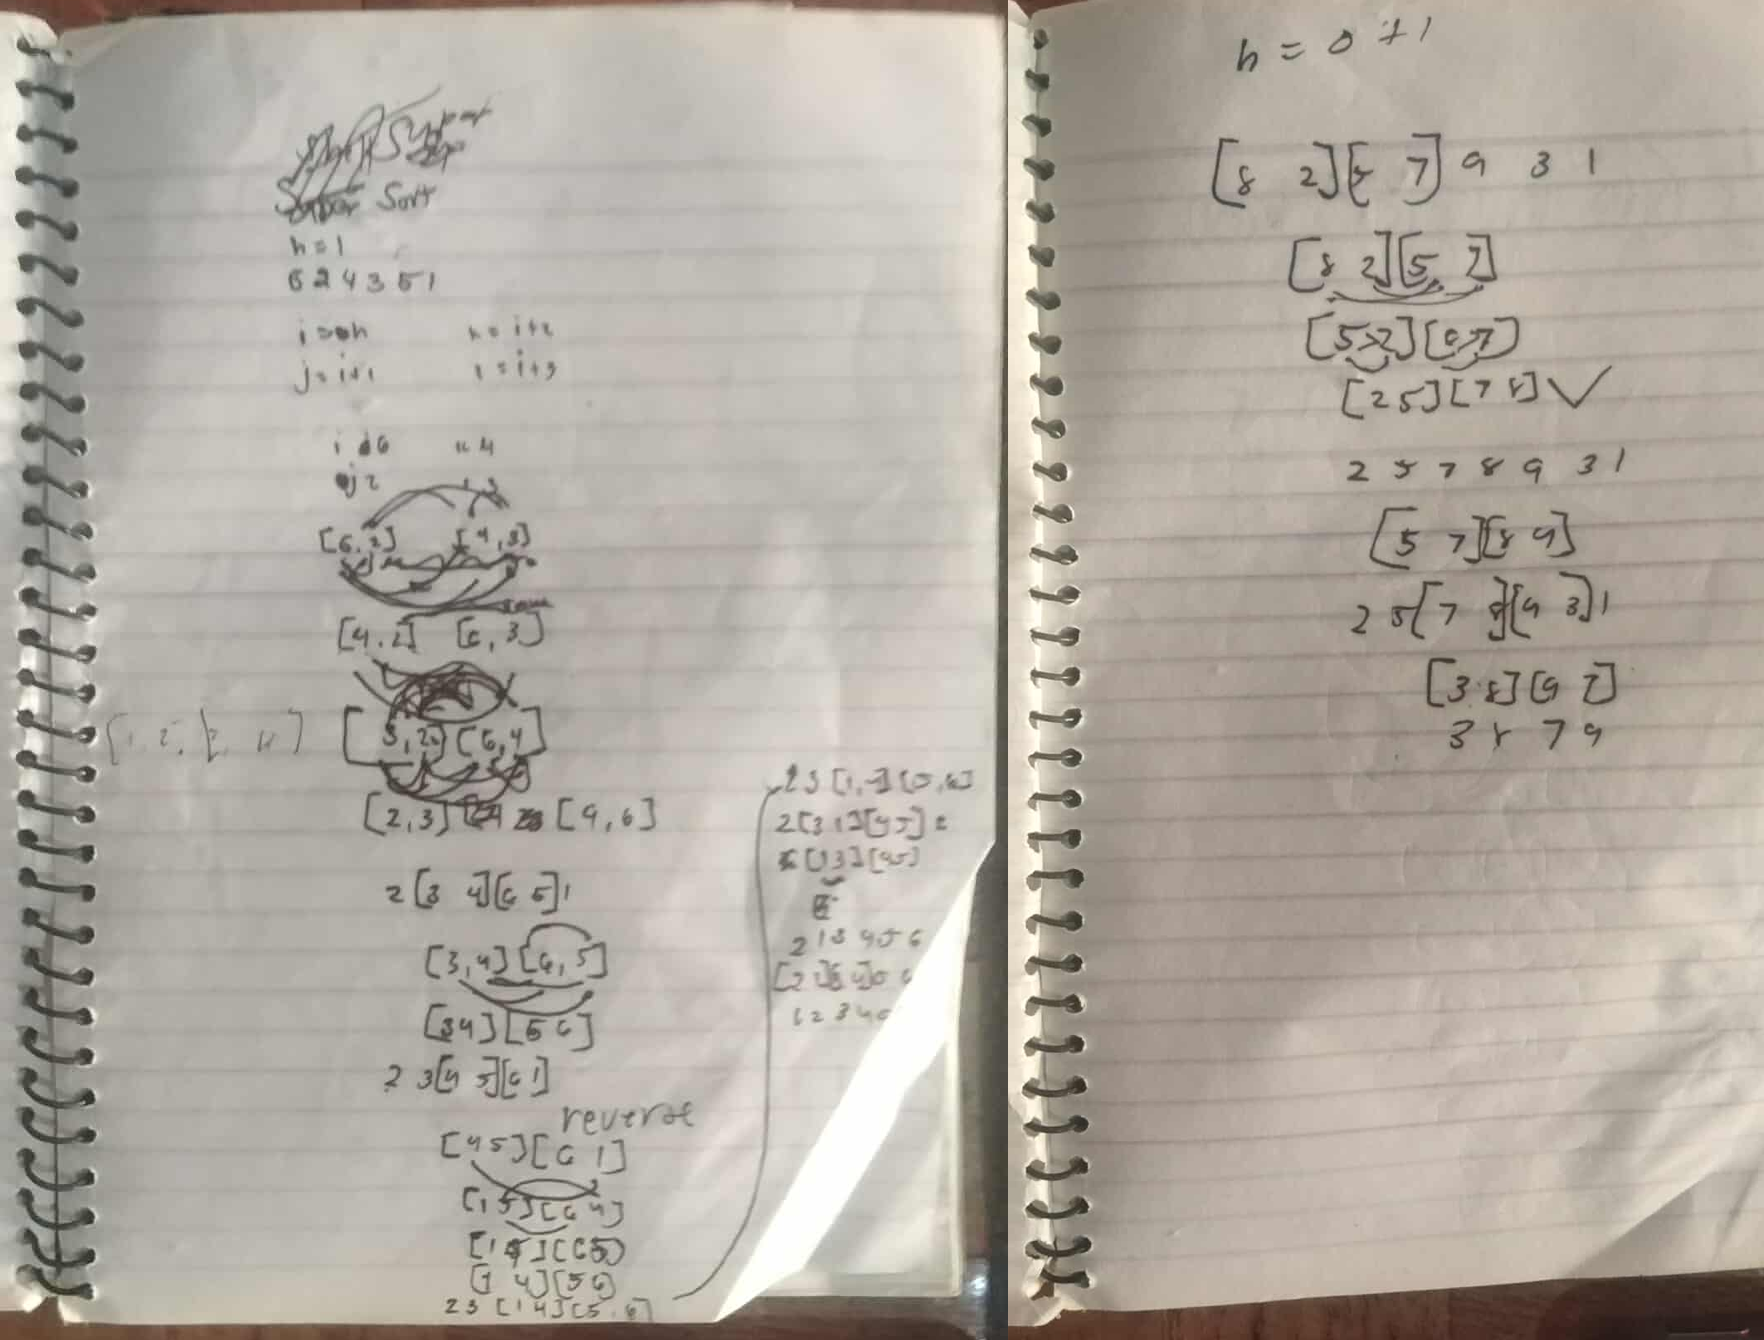 Super
Sort
h=1
6 2 4 3 5 1
i=0h k=i+2
j=i+1 l=i+3
i 6 k 4
j 2 l 3
[6,2] [4,3]
[4,2] [6,3]
[3,2] [6,4]
[2,3] [4,6]
2 [3 4][6 5] 1
[3,4][6,5]
[3 4][5 6]
2 3[4 5][6 1]
reverse
[4 5][6 1]
[1 5][6 4]
[1 4][6 5]
[1 4][5 6]
2 3 [1 4][5,6]
2 3 [1,4][5,6]
2[3 1][4 5] 6
[1 3][4 5]
2 1 3 4 5 6
[2 1][3 4]5 6
1 2 3 4 5
h = 0 + 1
[8 2][5 7] 9 3 1
[8 2][5 7]
[5 2][8 7]
[2 5][7 8] ✓
2 5 7 8 9 3 1
[5 7][8 9]
2 5[7 8][9 3]1
[3 8][9 7]
3 8 7 9